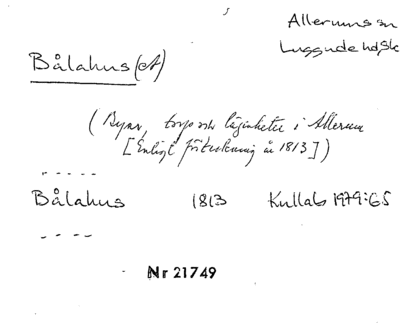 Allerums sn
Luggude hd Sk
Bålahus (et)
(Byar, torp och lägenheter i Allerum
[Enligt förteckning år 1813])
- - - - -
Bålahus 1813 Kullab 1979:65
- - - -
Nr 21749